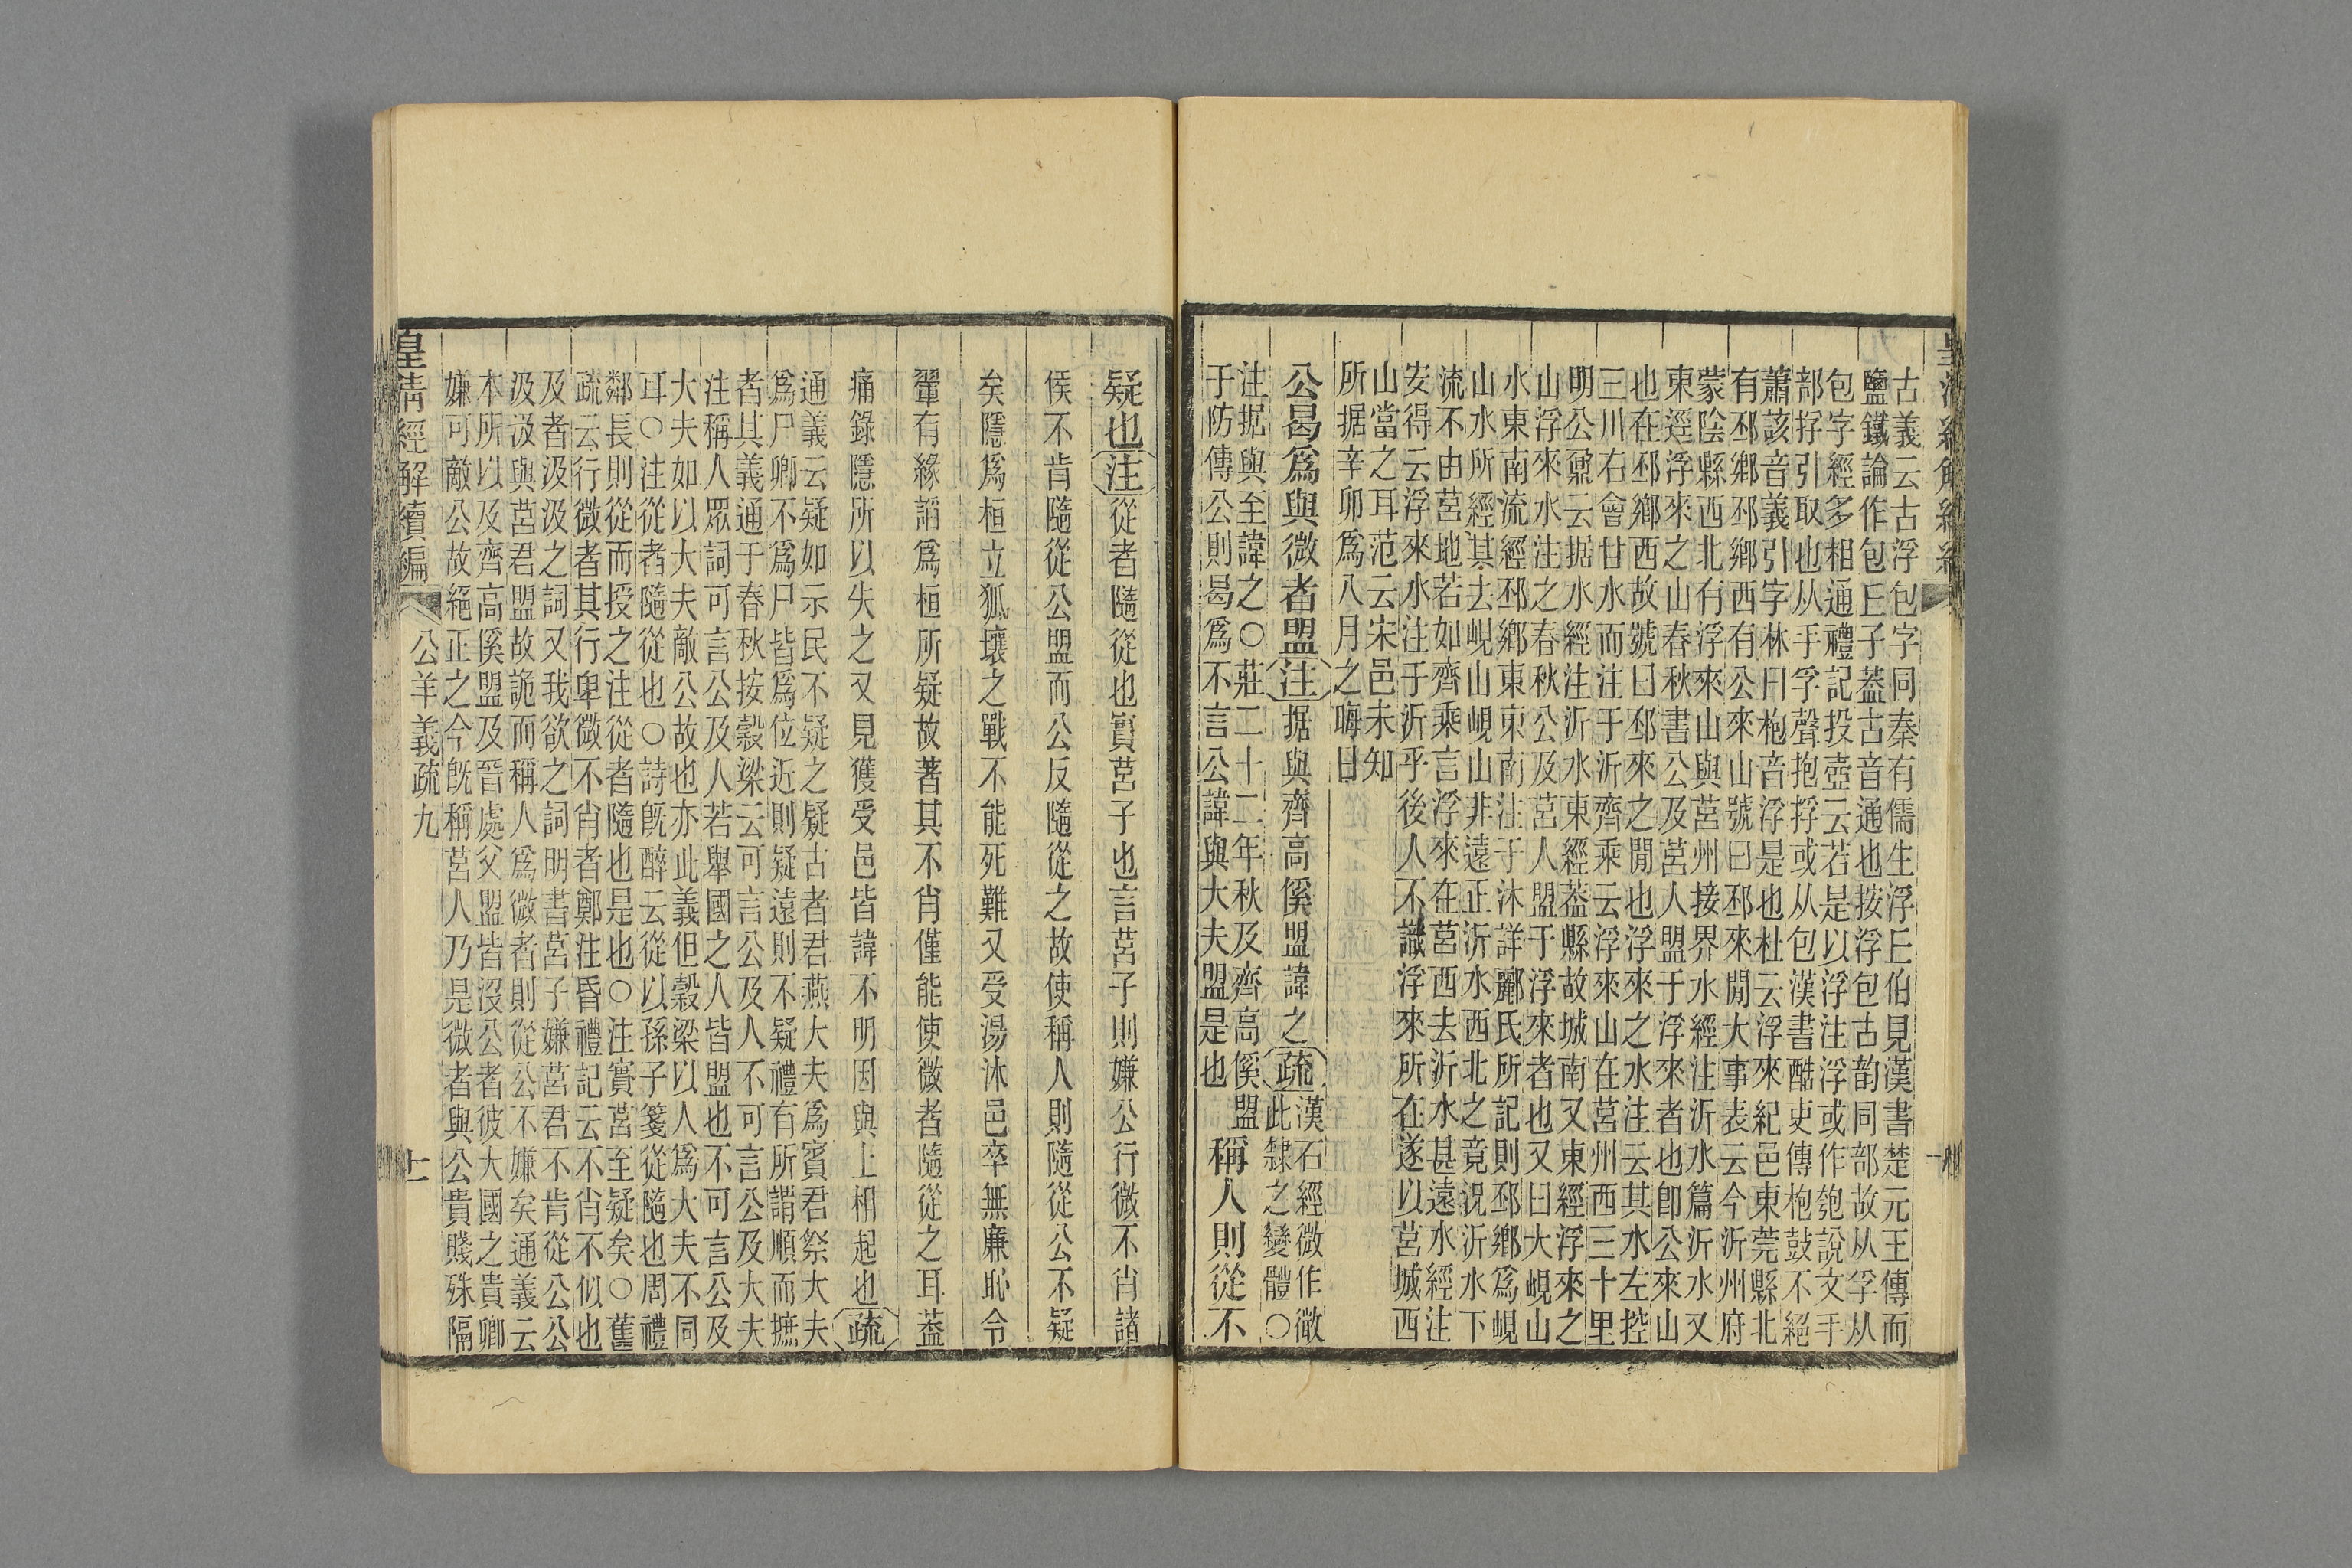 皇清經解續編
古義云古浮包字同秦有儒生浮丘伯見漢書楚元王傳而
鹽鐵論作包丘子葢古音通也按浮包古韵同部故从孚从
包字經多相通禮記投壺云若是以浮注浮或作匏說文手
部捊引取也从手孚聲抱捊或从包漢書酷吏傳枹鼓不絕
蕭該音義引字林曰枹音浮是也杜云浮來紀邑東莞縣北
有邳鄉邳鄉西有公來山號曰邳來閒大事表云今沂州府
蒙陰縣西北有浮來山與莒州接界水經注沂水篇沂水又
東逕浮來之山春秋書公及莒人盟于浮來者也卽公來山
也在邳鄉西故號曰邳來之閒也浮來之水注云其水左控
三川右會甘水而注于沂齊乘云浮來山在莒州西三十里
明公鼐云据水經注沂水東經葢縣故城南又東經浮來之
山浮來水注之春秋公及莒人盟于浮來者也又曰大峴山
水東南流經邳鄉東東南注于沭詳酈氏所記則邳鄉爲峴
山水所經其去峴山峴山非遠正沂水西北之竟況沂水下
流不由莒地若如齊乘言浮來在莒西去沂水甚遠水經注
安得云浮來水注于沂乎後人不識浮來所在遂以莒城西
山當之耳范云宋邑未知
所据辛卯爲八月之晦日
公曷爲與微者盟注据與齊高傒盟諱之疏漢石經微作㣲
此隸之變體○
注据與至諱之○莊二十二年秋及齊高傒盟
于防傳公則曷爲不言公諱與大夫盟是也
稱人則從不
疑也注從者隨從也實莒子也言莒子則嫌公行微不肖諸
侯不肯隨從公盟而公反隨從之故使稱人則隨從公不疑
矣隱爲桓立狐壤之戰不能死難又受湯沐邑卒無廉恥令
翬有緣諂爲桓所疑故著其不肖僅能使微者隨從之耳葢
痛錄隱所以失之又見獲受邑皆諱不明因與上相起也疏
通義云疑如示民不疑之疑古者君燕大夫爲賓君祭大夫
爲尸卿不爲尸皆爲位近則疑遠則不疑禮有所謂順而摭
者其義通于春秋按穀梁云可言公及人不可言公及大夫
注稱人眾詞可言公及人若舉國之人皆盟也不可言公及
大夫如以大夫敵公故也亦此義但穀梁以人爲大夫不同
耳○注從者隨從也○詩旣醉云從以孫子箋從隨也周禮
鄰長則從而授之注從者隨也是也○注實莒至疑矣○舊
疏云行微者其行卑微不肖者鄭注昏禮記云不肖不似也
及者汲汲之詞又我欲之詞明書莒子嫌莒君不肯從公公
汲汲與莒君盟故詭而稱人爲微者則從公不嫌矣通義云
本所以及齊高傒盟及晉處父盟皆沒公者彼大國之貴卿
嫌可敵公故絕正之今旣稱莒人乃是微者與公貴賤殊隔
皇清經解續編
公羊義疏九